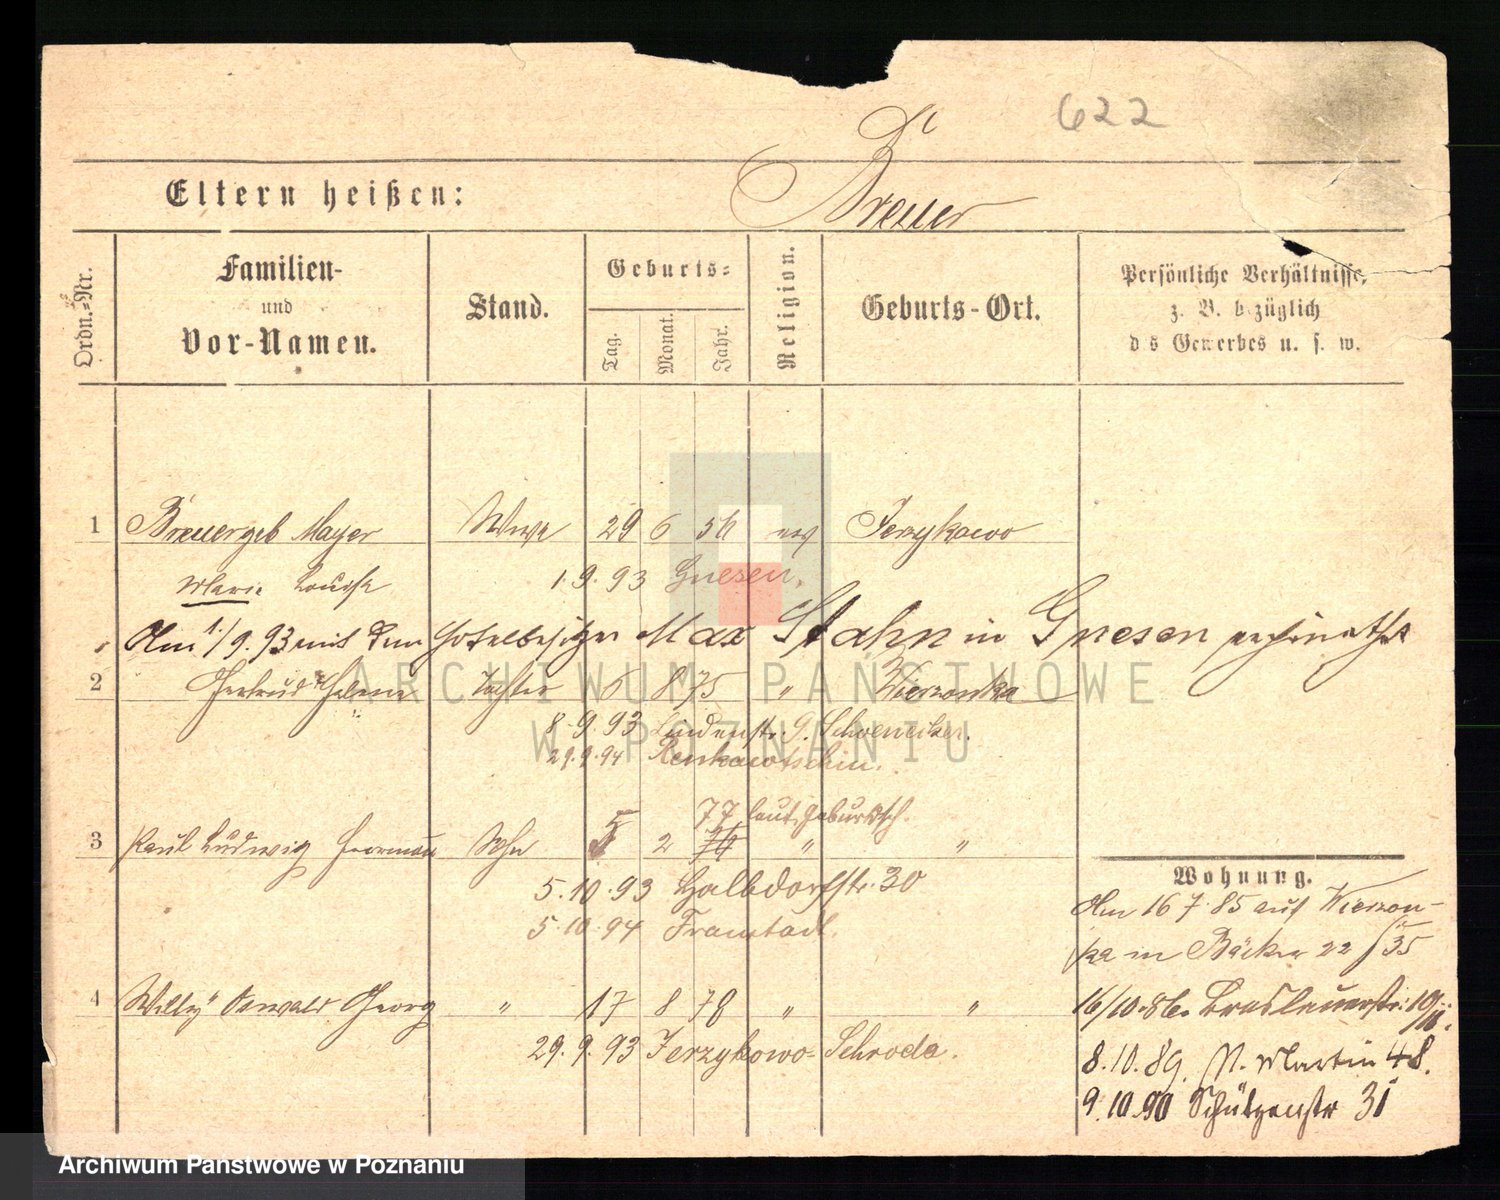 622
Eltern heißen:
Breuer
Ordn.-Nr.
Familien-
und
Vor-Namen.
Stand.
Geburts-
Tag.
Monat.
Jahr.
Religion.
Geburts-Ort.
Persönliche Verhältnisse,
z. B. bezüglich
d s Gewerbes u. s. w.
1 Breuer geb Mayer Wwe 29 6 54 ev Jerzykowo
Marie Louise 1. 9. 93 Gnesen.
Am 1./9. 93 mit dem Hotelbesitzer Max Stahn in Gnesen verheirathet
2 Gertrud Helene Tochter 6 8 75 " Wierzonka
8. 9. 93 Lindenstr. 9. Schoenecker.
29. 9. 94
77 laut Geburtssch.
3 Paul Ludwig Herrmann Sohn 5 2 76 " "
5. 10. 93 Halbdorfstr. 30
5. 10. 94 Fraustadt.
4 Willy Oswald Georg " 17 8 78 " "
29. 9. 93 Jerzykowo- Schroda.
Wohnung.
Am 16 7. 85 auf Wierzon-
ka in Bäcker 22 / 35
16/10. 86. Breslauerstr. 10/11.
8. 10. 89. St. Martin 48.
9. 10. 90 Schützenstr 31
ARCHIWUM PAŃSTWOWE
W POZNANIU
Archiwum Państwowe w Poznaniu